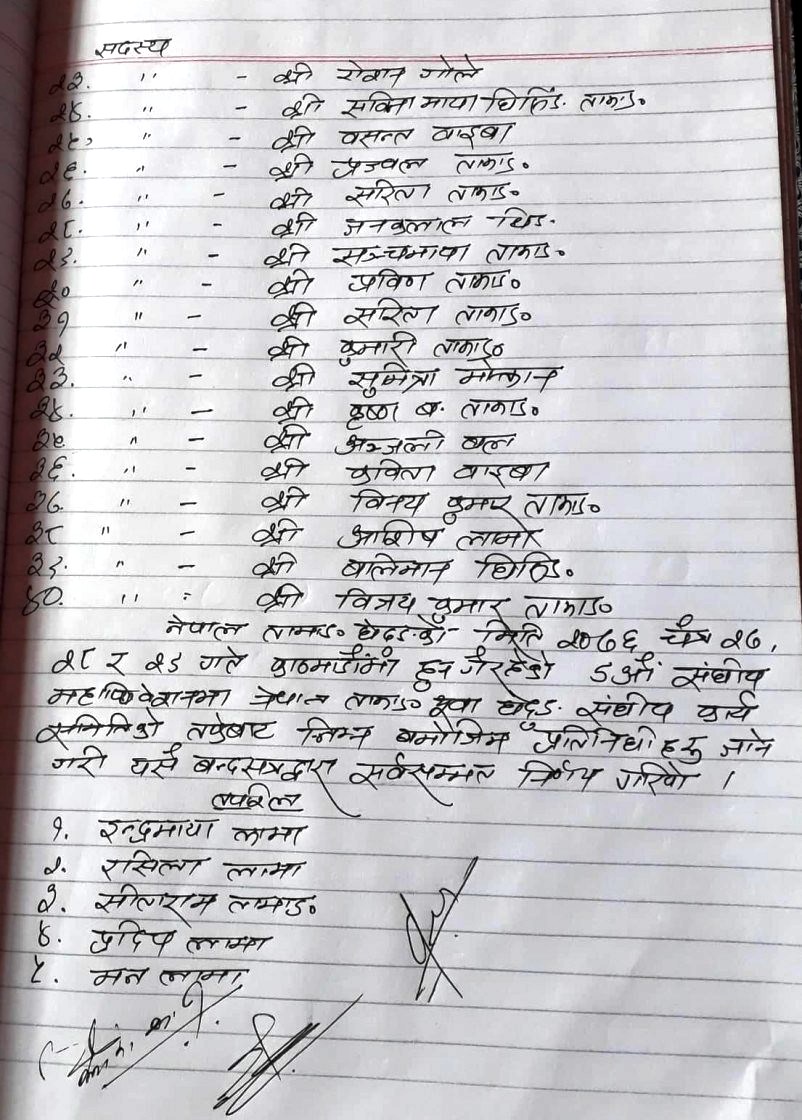 सदस्य
२३. " - श्री रोशन गोले
२४. " - श्री सविना माया घिसिङ तामाङ
२५. " - श्री वसन्त वाइबा
२६. " - श्री प्रज्वल तामाङ
२७. " - श्री सरिता तामाङ
२८. " - श्री जनकलाल थिङ
२९. " - श्री सञ्चमाया तामाङ
३० " - श्री प्रविण तामाङ
३१ " - श्री सरिता तामाङ
३२ " - श्री कुमारी तामाङ
३३. " - श्री सुमित्रा मोक्तान
३४. " - श्री कृष्ण ब. तामाङ
३५ " - श्री अञ्जली बल
३६. " - श्री कविता वाइबा
३७ " - श्री विनय कुमार तामाङ
३८ " - श्री आशिष लामो
३९. " - श्री बालिमान घिसिङ
४०. " - श्री विजय कुमार तामाङ
नेपाल तामाङ घेदुङको मिति २०७६ चैत्र २७,
२८ र २९ गते काठमाडौंमा हुन गैरहेको ९औं संघीय
महाधिवेशनमा नेपाल तामाङ युवा घेदुङ संघीय कार्य
समितिको तर्फबाट निम्न बमोजिम प्रतिनिधीहरु जाने
गरी यसै बन्दसत्रद्वारा सर्वसम्मत निर्णय गरियो ।
तपशिल
१. इन्द्रमाया लामा
२. रसिला लामा
३. सीताराम तामाङ
४. प्रदिप लामा
५. मन लामा